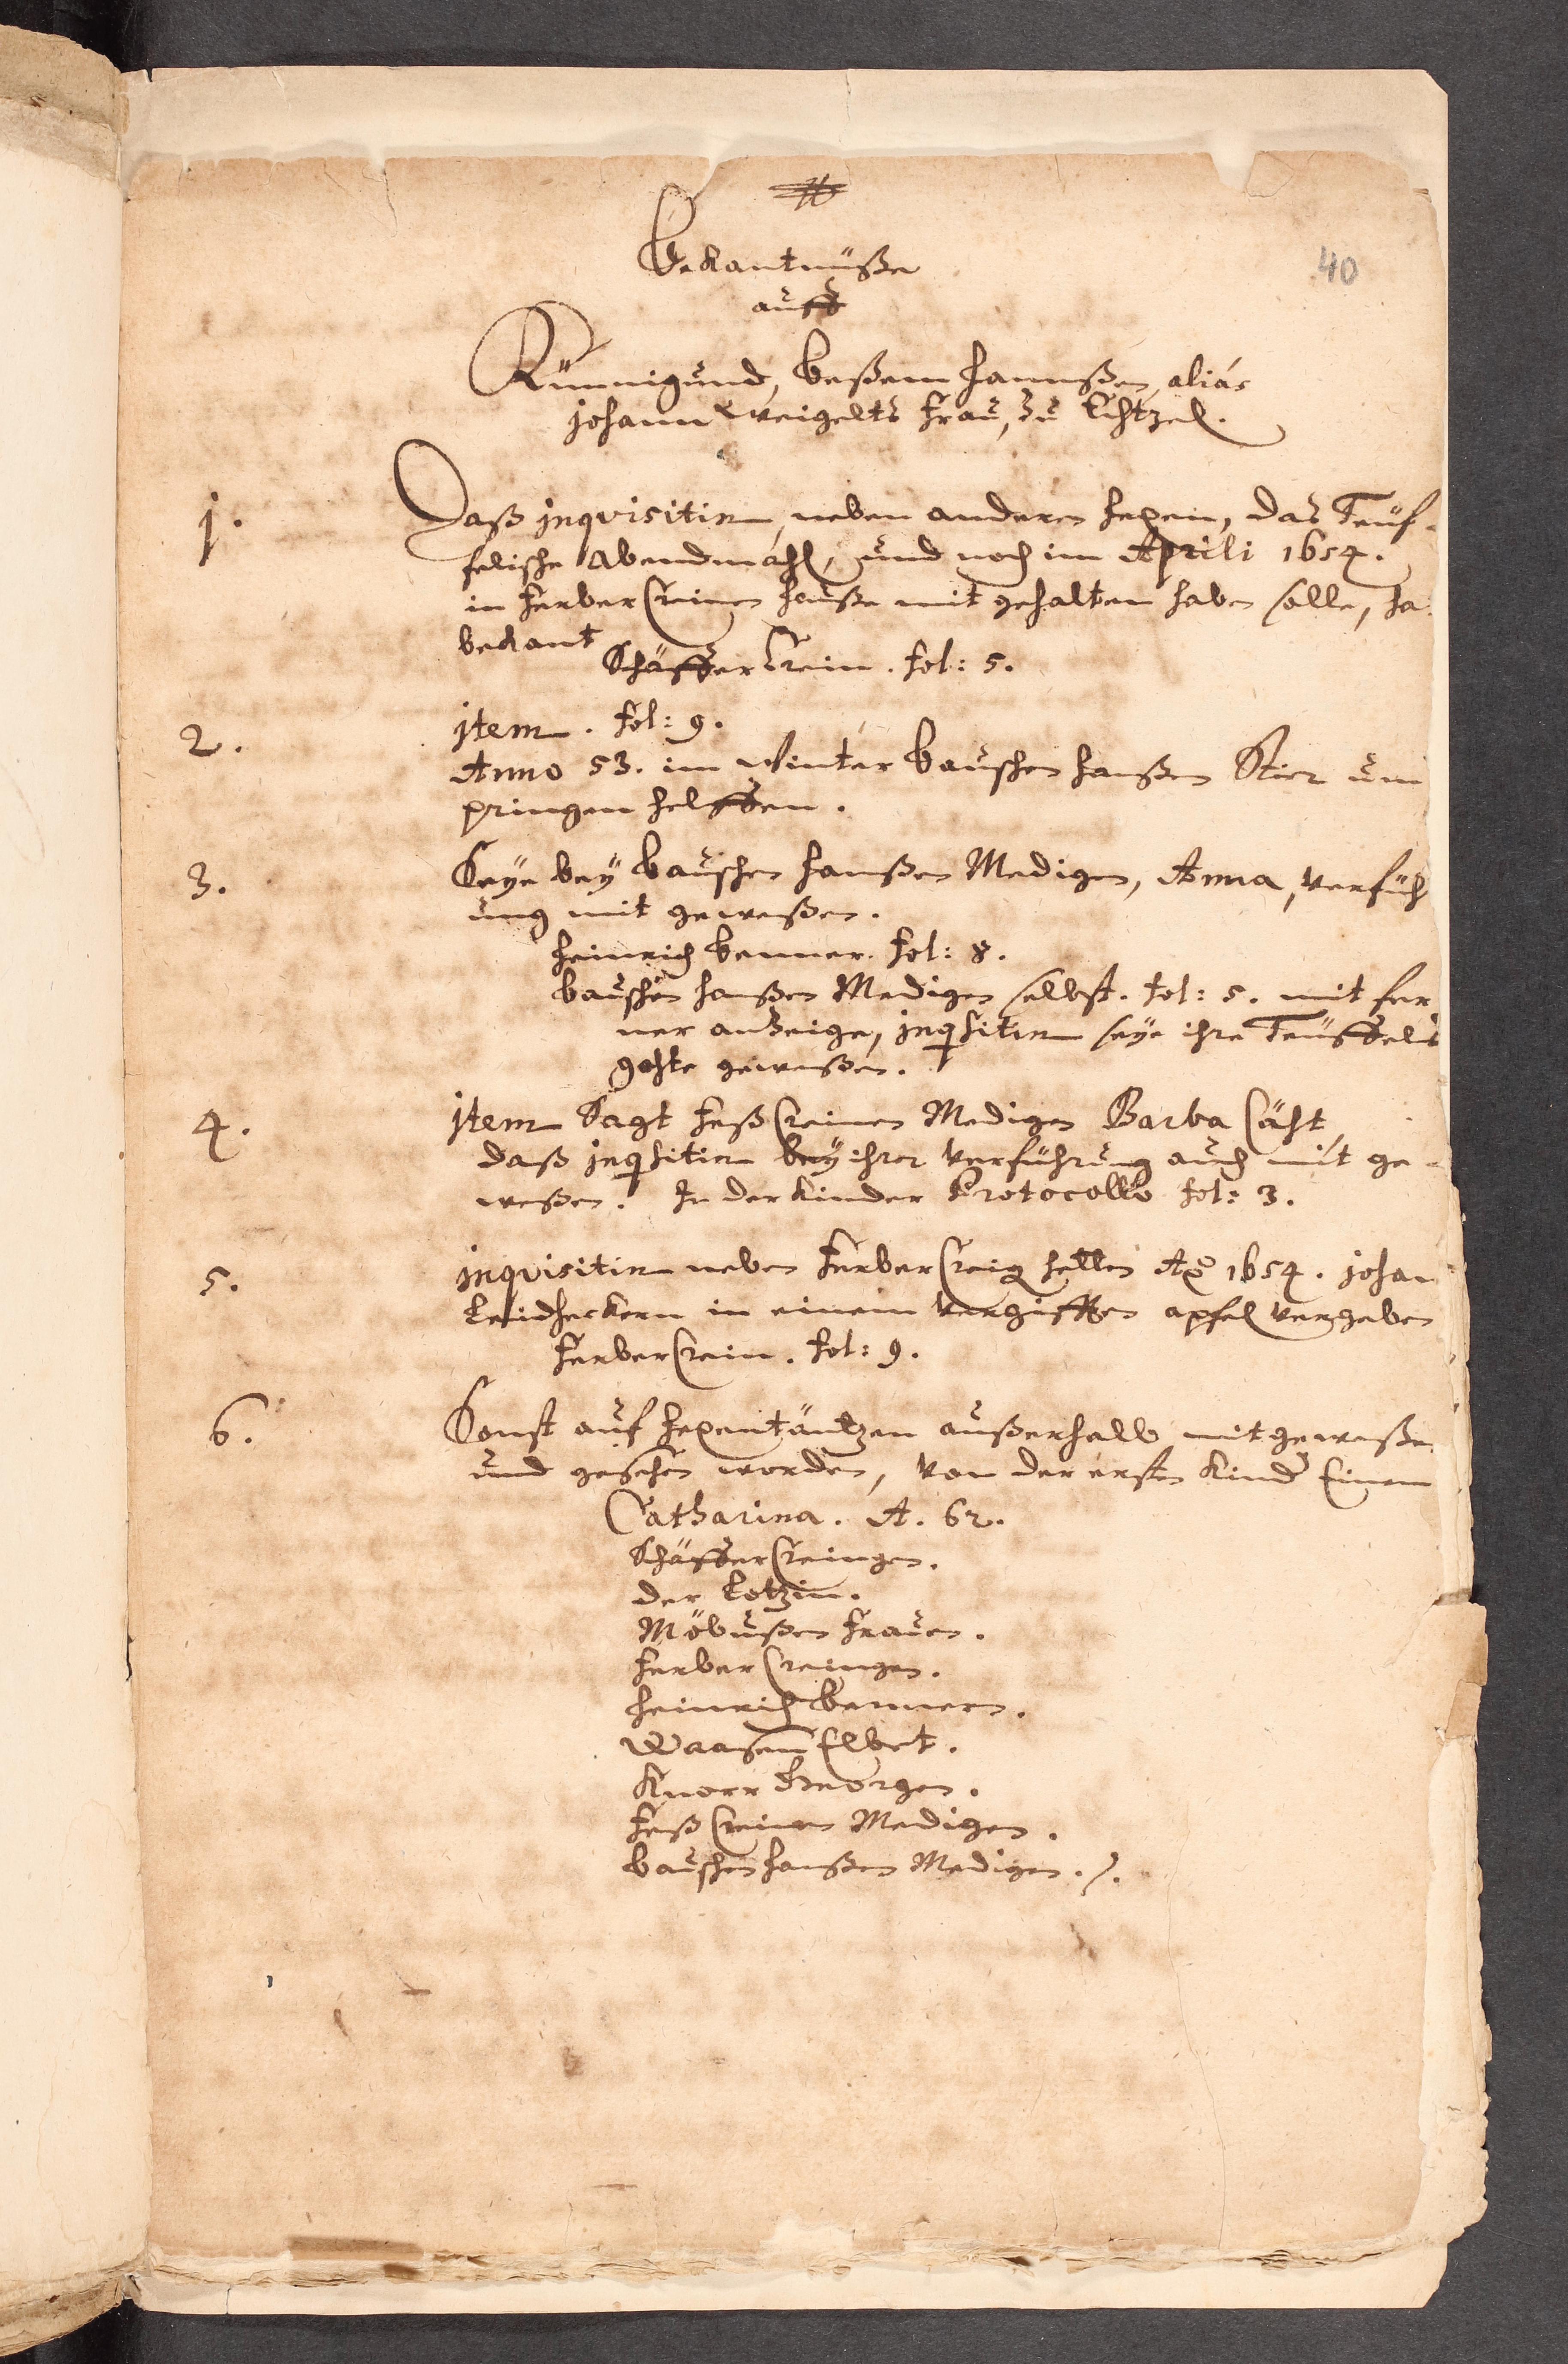 40
Bekantnüße
auff
Künnigund, Beßem Hannßen, aliàs
Johann Weigelts Frau, zu Echtzel.
1. Daß Inquisitin, neben anderen Hexen, das Teüf-
felische Abendmahl, und noch im Aprili 1654.
in Ferber Creinen hauße mit gehalten haben solle, ha
bekant
Schäffer Crein. fol: 5.
2. Item. fol: 9.
Anno 53. im Winter Bauschen Hanßen Stier um
pringen helffen.
3. Seye bey Bauschen Hanßen Medigen, Anna, Verfüh
ung mit geweßen.
Heinrich Benner. fol: 8.
Bauschen Hanßen Medigen selbst. fol: 5. mit fer
ner anzeige, Inqsitin seye ihre Teüffels
gohte geweßen.
4. Item Sagt Creinen Medigen Barba
daß Inqsitin bey ihrer Verführung auch mit ge-
weßen. In der Kinder Protocollo fol: 3.
5. Inquisitin neben Ferber hetten Aō 1654. Johan
in einem vergifften apfel vergeben
Ferber Crein. fol: 9.
6. Sonst auf Hexentäntzen außerhalb mit geweßen
und gesehen worden, von der ersten Kind
Catharina. A. 62.
Schäffer Creingen.
der Lotzin.
Möbußen Frauen.
Ferber Creingen.
Heinrich Bennern.
Elbert.
Knorr Georgen.
Creinen Medigen.
Bauschen Hanßen Medigen.